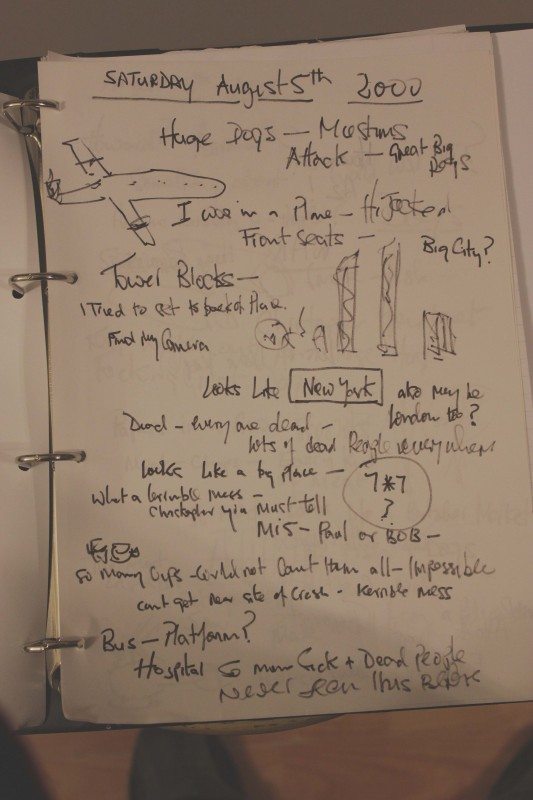 SATURDAY August 5th 2000
Huge Dogs — Muslims
Attack — Great Big Dogs
I was in a Plane — HiJacked
Front Seats —
Big City?
Tower Blocks —
I Tried to get to back of Plane.
Find My Camera
Looks Like New York also may be London too?
Dead — everyone dead —
lots of dead People everywhere
Looks Like a big Place —
7*7
?
What a terrible mess —
Christopher you Must tell
MI5 — Paul or BOB —
So Many Cups — Could not Count them all — Impossible
cant get near site of Crash — terrible mess
Bus — Platform?
Hospital So many Sick + Dead People
Never seen this Before